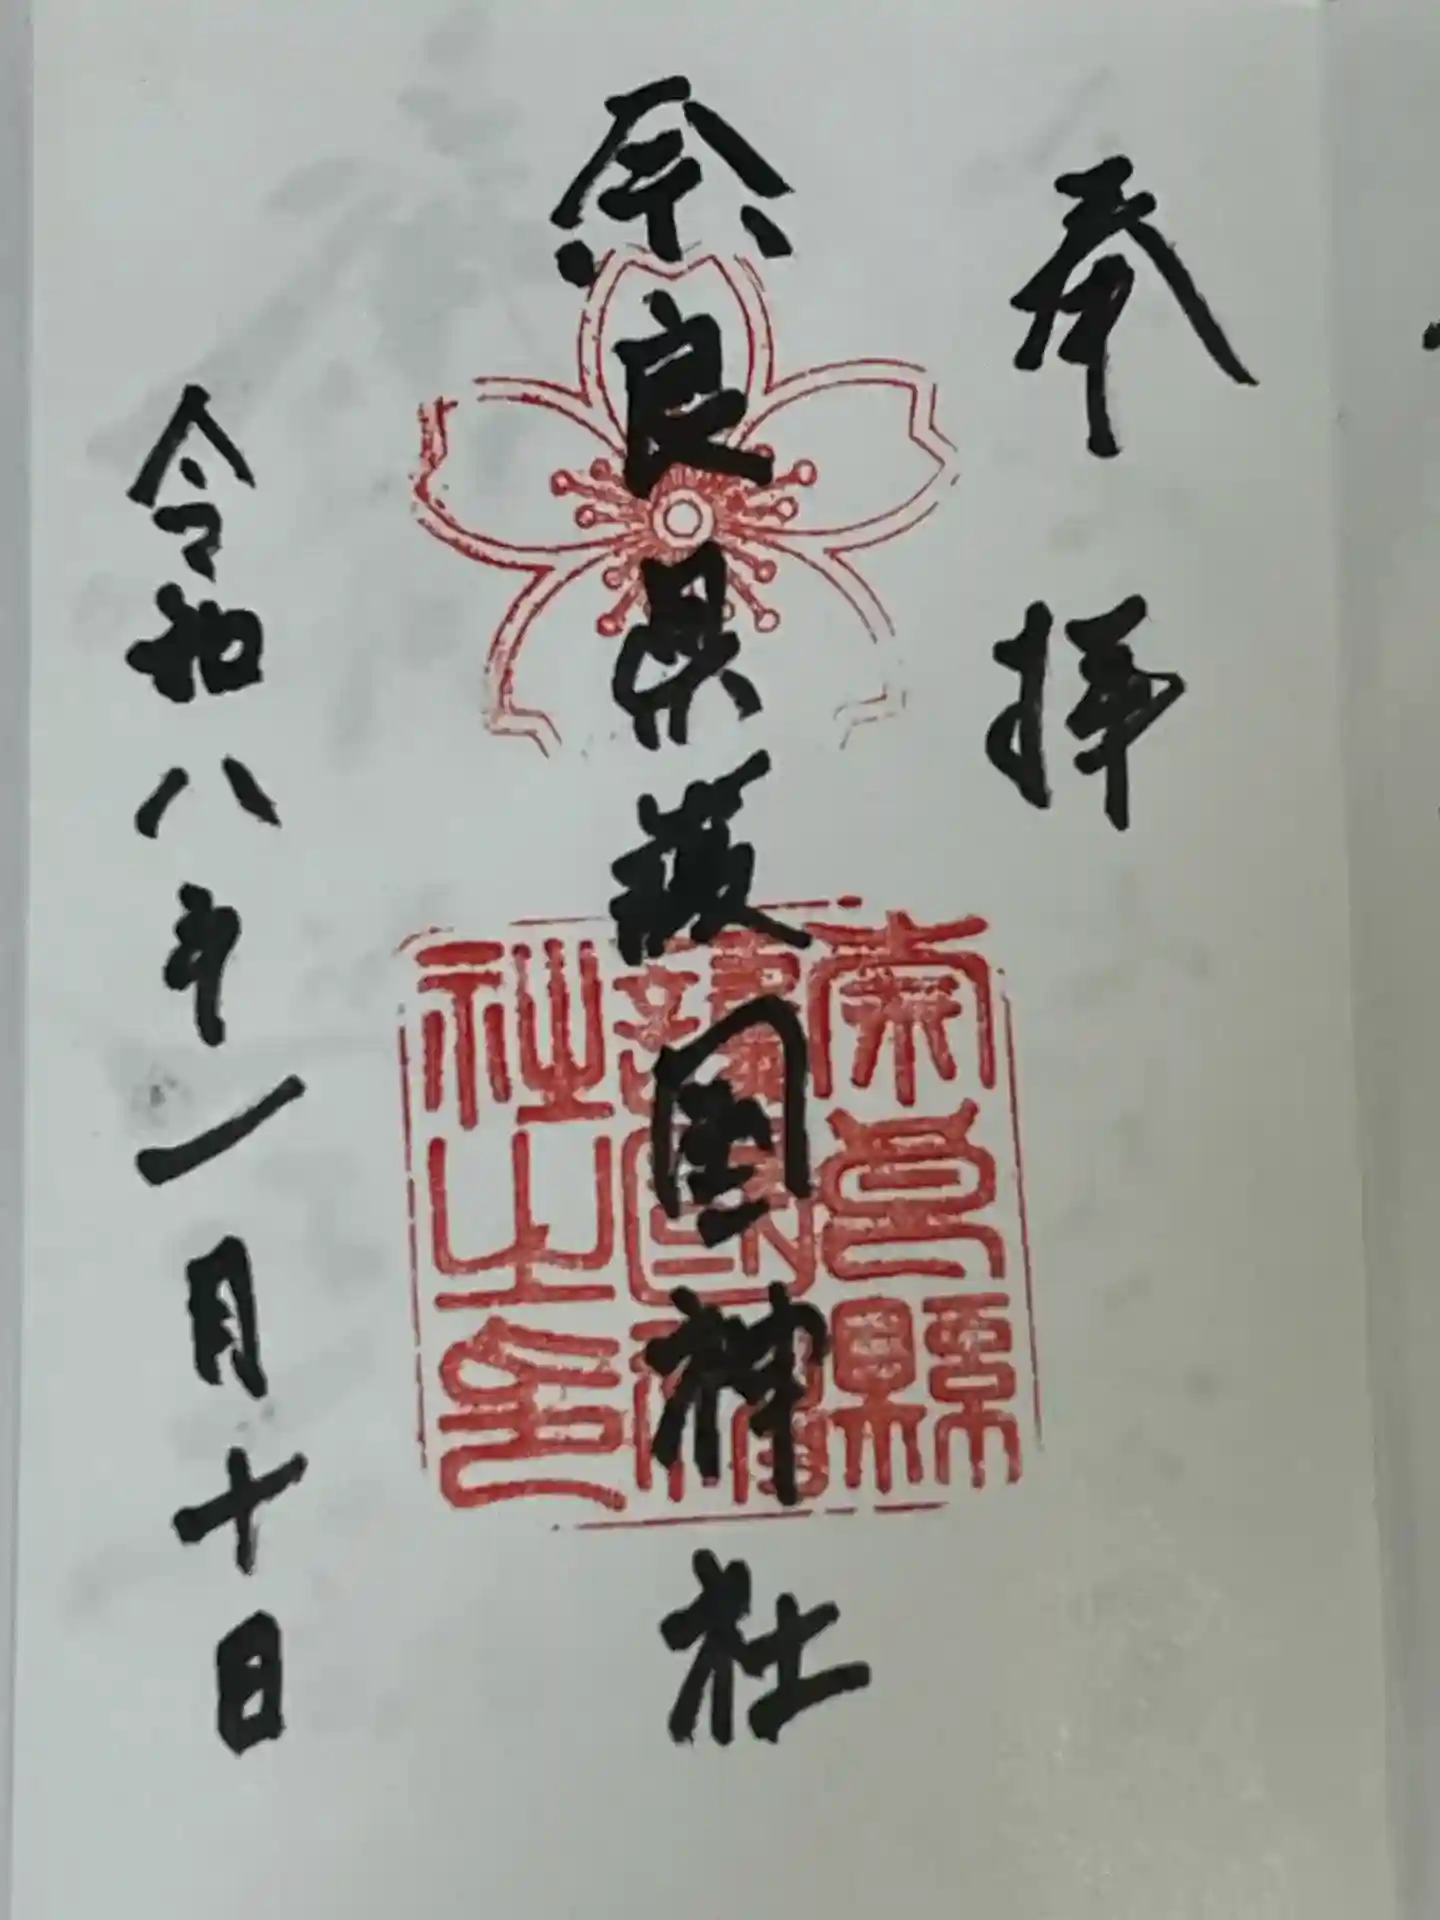 奉拝
奈良県護国神社
奈良縣
護國神
社之印
令和八年一月十日